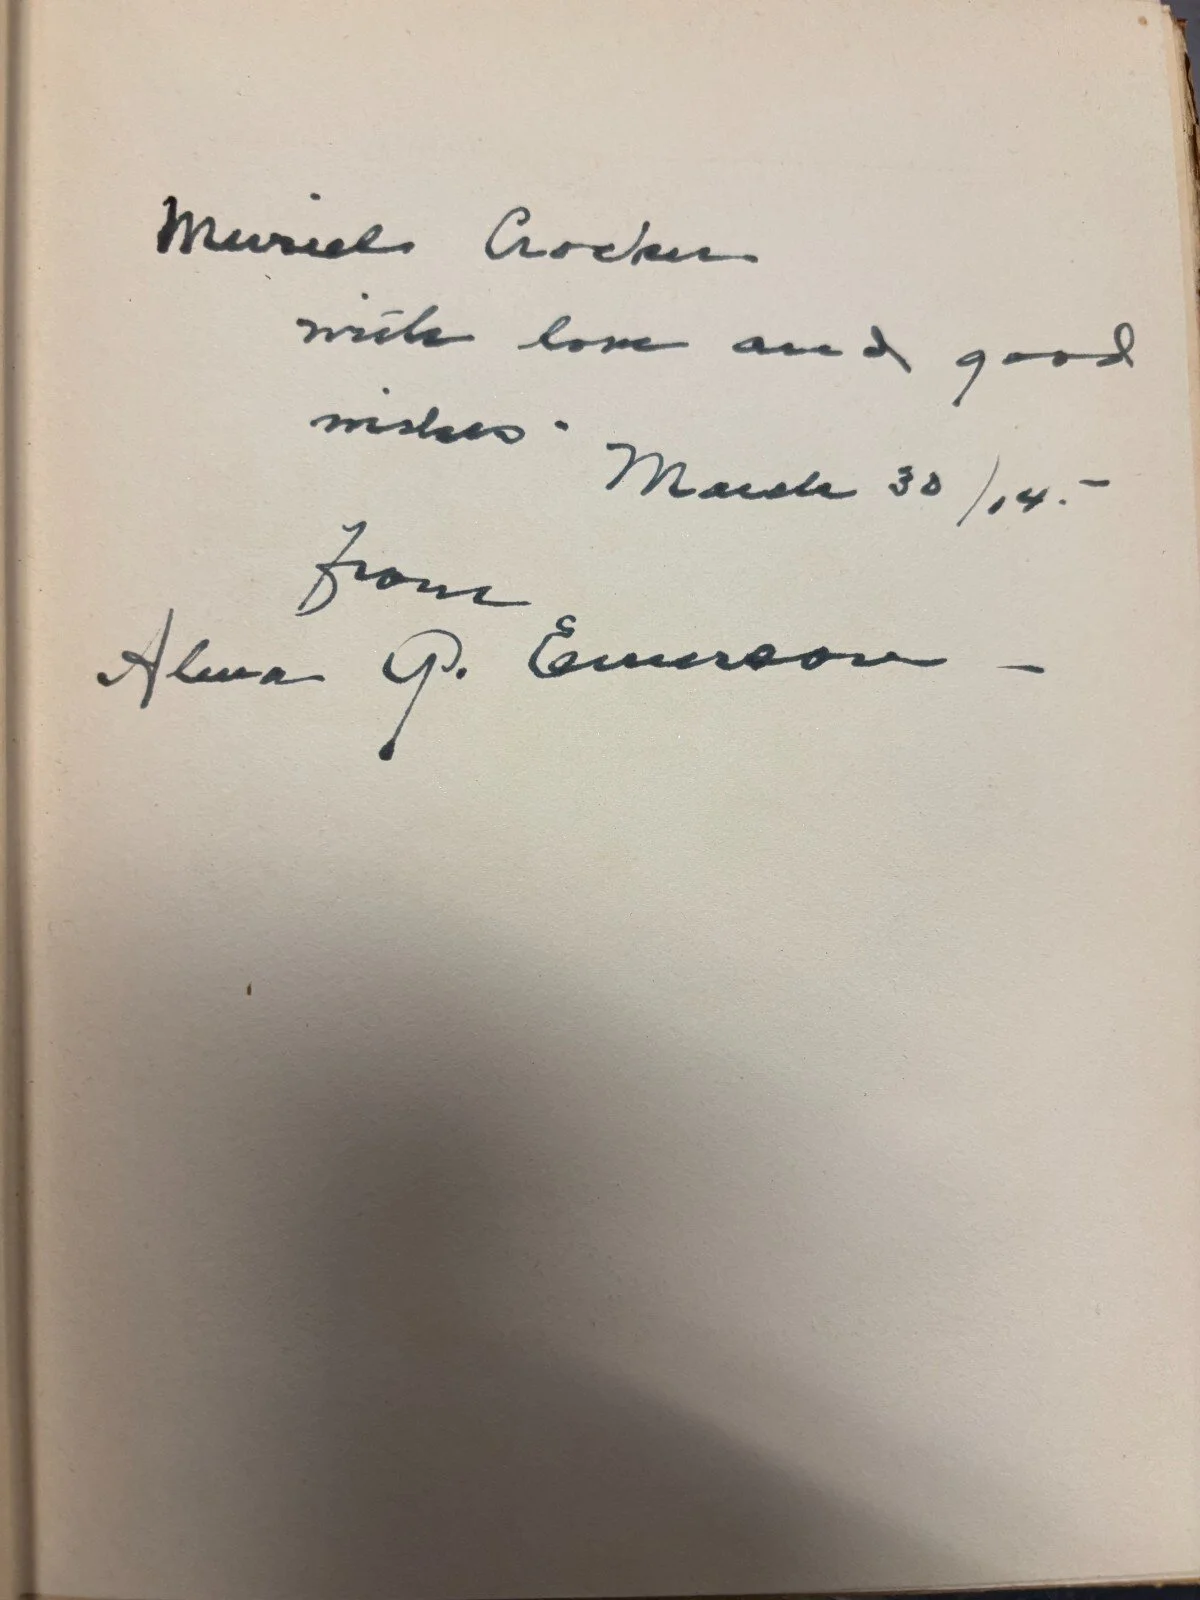 Muriel Crocker
with love and good
wishes.
March 30/14.-
from
Alma P. Emerson -